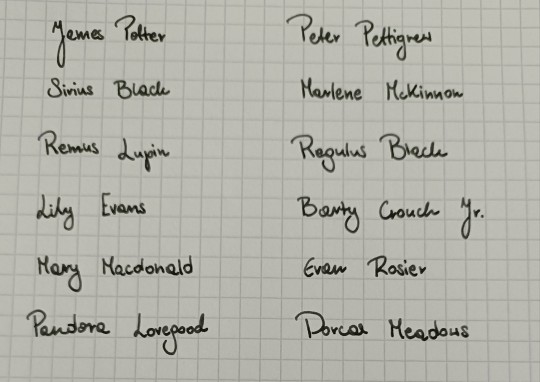 James Potter
Sirius Black
Remus Lupin
Lily Evans
Mary Macdonald
Pandora Lovegood
Peter Pettigrew
Marlene McKinnon
Regulus Black
Barty Crouch Jr.
Evan Rosier
Dorcas Meadows